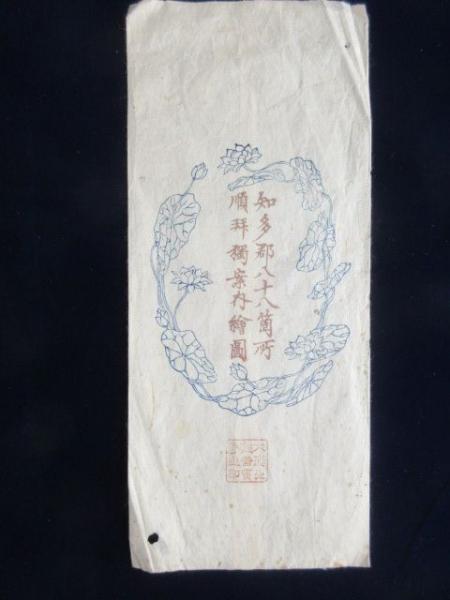 知多郡八十八箇所
順拜獨案内繪圖